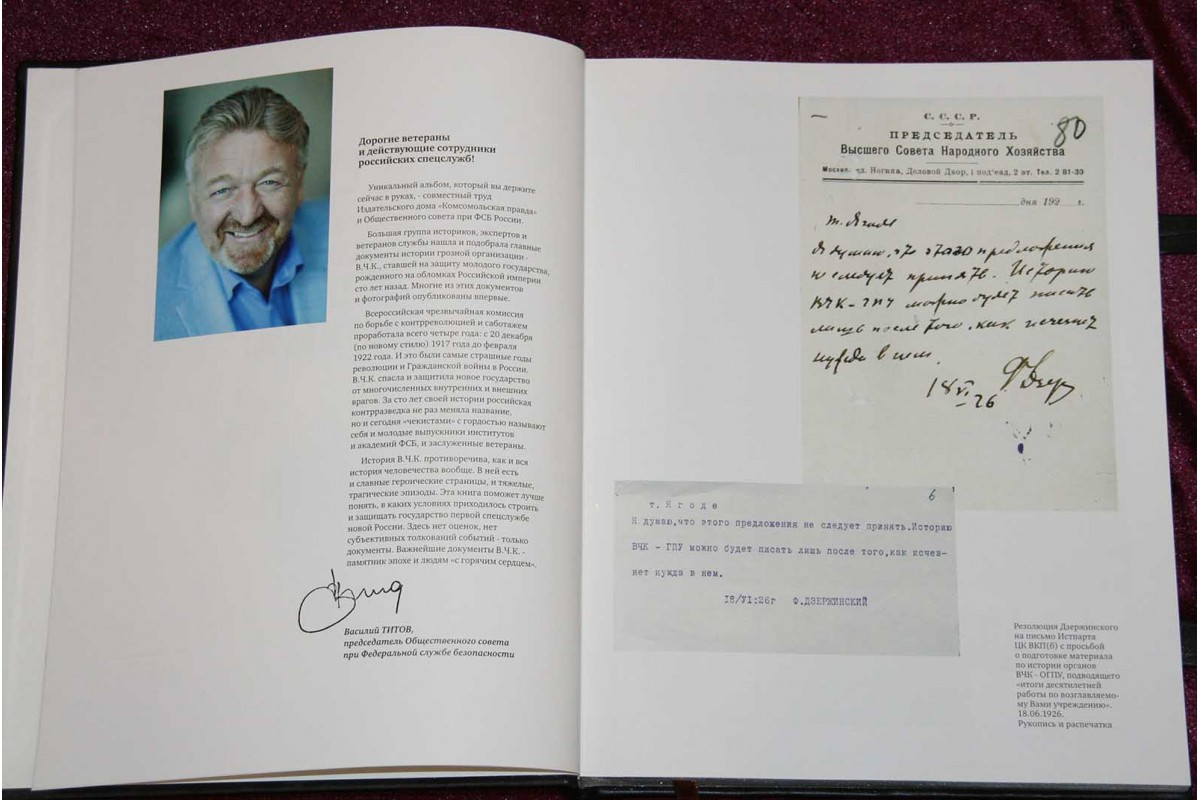 Дорогие ветераны
и действующие сотрудники
российских спецслужб!
Уникальный альбом, который вы держите
сейчас в руках, - совместный труд
Издательского дома «Комсомольская правда»
и Общественного совета при ФСБ России.
Большая группа историков, экспертов и
ветеранов службы нашла и подобрала главные
документы истории грозной организации -
В.Ч.К., ставшей на защиту молодого государства,
рожденного на обломках Российской империи
сто лет назад. Многие из этих документов
и фотографий опубликованы впервые.
Всероссийская чрезвычайная комиссия
по борьбе с контрреволюцией и саботажем
проработала всего четыре года: с 20 декабря
(по новому стилю) 1917 года до февраля
1922 года. И это были самые страшные годы
революции и Гражданской войны в России.
В.Ч.К. спасла и защитила новое государство
от многочисленных внутренних и внешних
врагов. За сто лет своей истории российская
контрразведка не раз меняла название,
но и сегодня «чекистами» с гордостью называют
себя и молодые выпускники институтов
и академий ФСБ, и заслуженные ветераны.
История В.Ч.К. противоречива, как и вся
история человечества вообще. В ней есть
и славные героические страницы, и тяжелые,
трагические эпизоды. Эта книга поможет лучше
понять, в каких условиях приходилось строить
и защищать государство первой спецслужбе
новой России. Здесь нет оценок, нет
субъективных толкований событий - только
документы. Важнейшие документы В.Ч.К. -
памятник эпохе и людям «с горячим сердцем».
Василий ТИТОВ,
председатель Общественного совета
при Федеральной службе безопасности
С. С. С. Р.
80
ПРЕДСЕДАТЕЛЬ
Высшего Совета Народного Хозяйства
Москва, пл. Ногина, Деловой Двор, 1 под'езд, 2 эт. Тел. 2 81-30
дня 192 г.
т. Ягода
Я думаю, что этого предложения
не следует принять. Историю
ВЧК-ГПУ можно будет писать
лишь после того, как исчезнет
нужда в нем.
18/VI 26
Ф Дзер
6
т. Ягоде
Я думаю,что этого предложения не следует принять.Историю
ВЧК - ГПУ можно будет писать лишь после того,как исчез-
нет нужда в нем.
18/УІ:26г Ф.ДЗЕРЖИНСКИЙ
Резолюция Дзержинского
на письмо Истпарта
ЦК ВКП(б) с просьбой
о подготовке материала
по истории органов
ВЧК - ОГПУ, подводящего
«итоги десятилетней
работы по возглавляемо-
му Вами учреждению».
18.06.1926.
Рукопись и распечатка